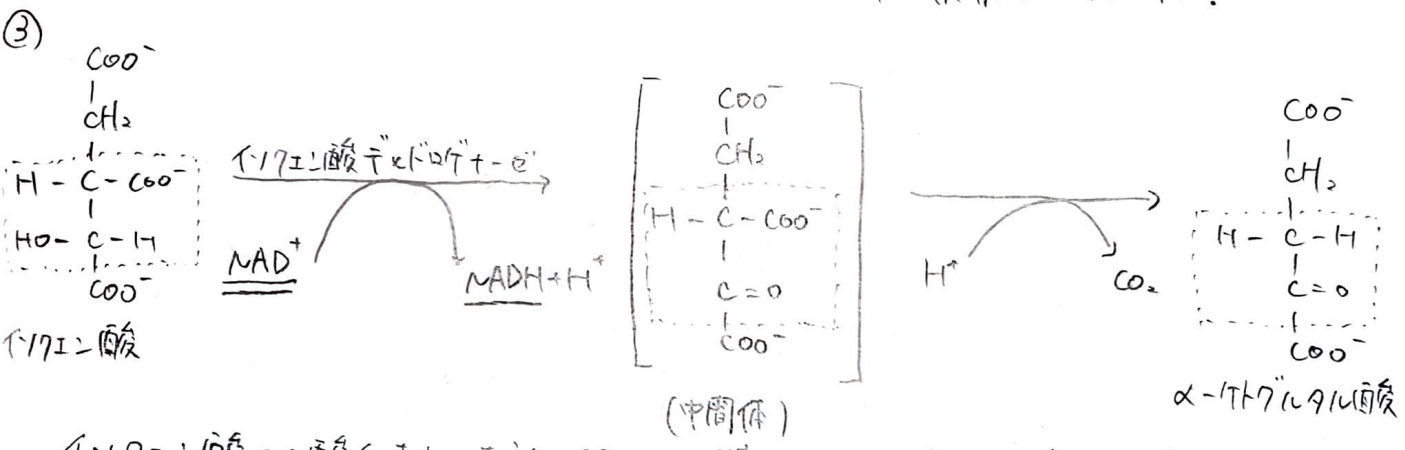 ③
COO⁻
CH₂
H - C - COO⁻
HO - C - H
COO⁻
イソクエン酸
イソクエン酸デヒドロゲナーゼ
NAD⁺
NADH + H⁺
COO⁻
CH₂
H - C - COO⁻
C = O
COO⁻
(中間体)
H⁺
CO₂
COO⁻
CH₂
H - C - H
C = O
COO⁻
α-ケトグルタル酸